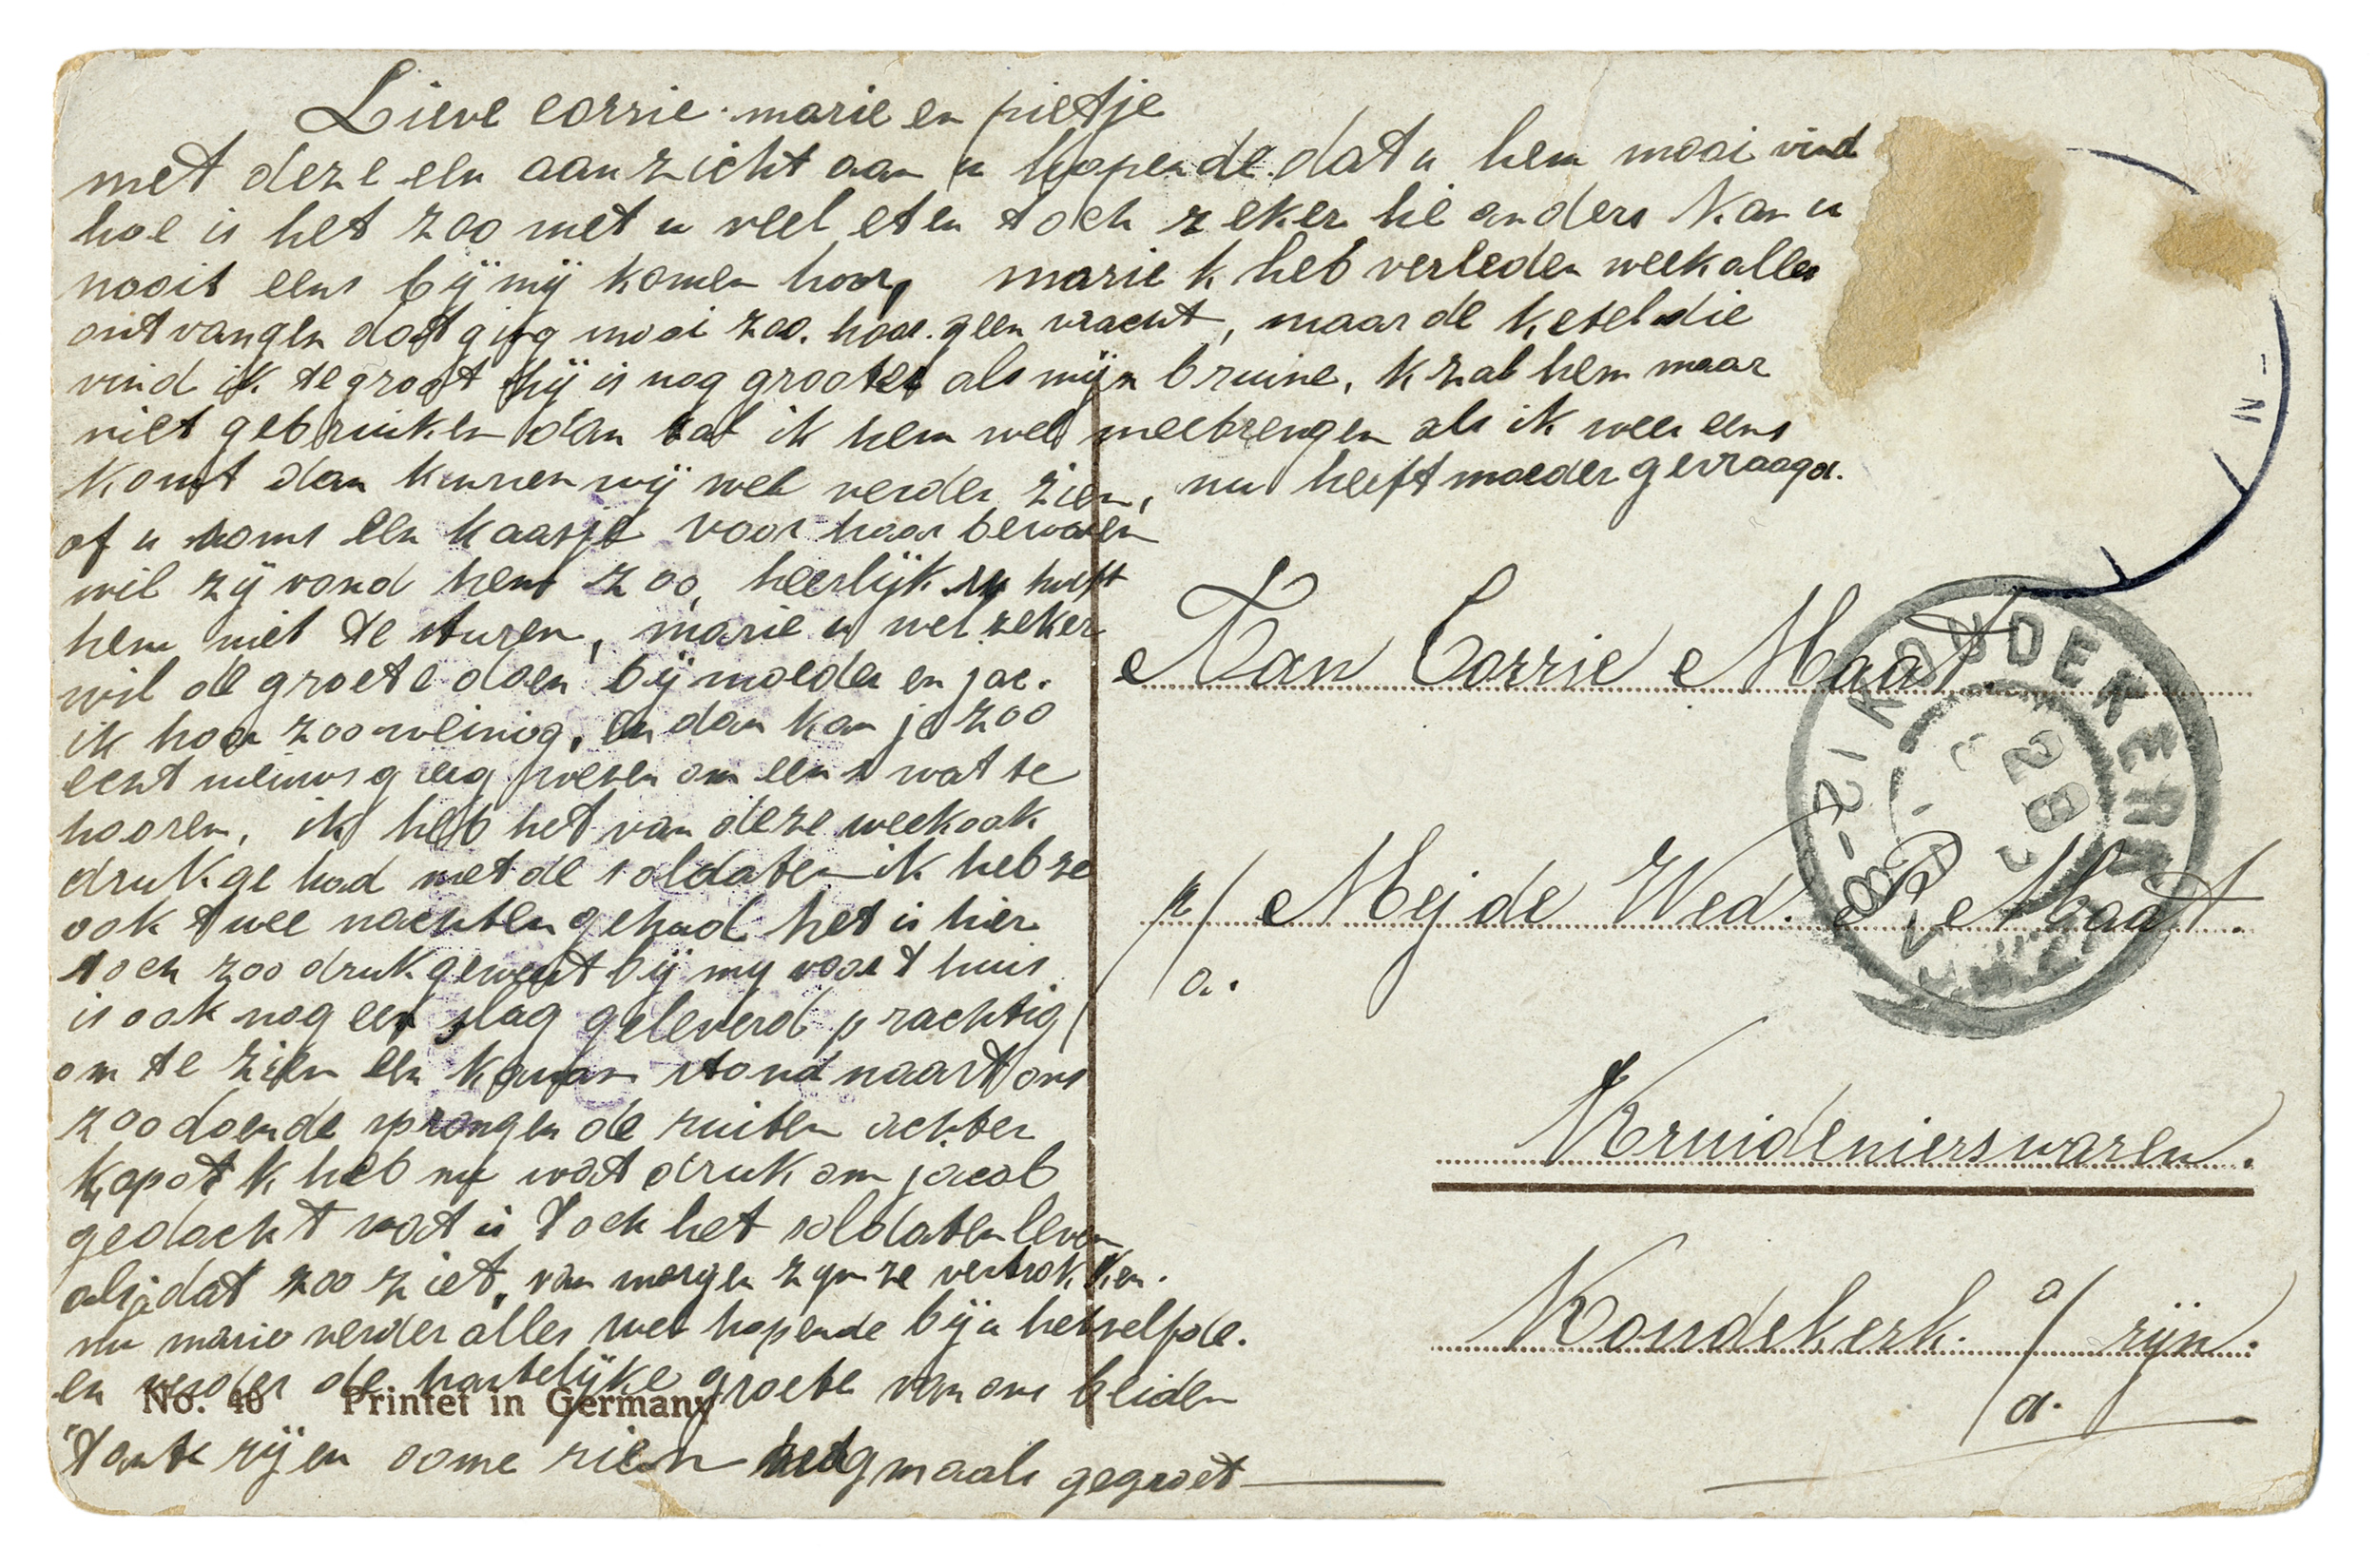 Lieve corrie. marie en pietje
met deze een aanzicht aan u hopende. dat u hem mooi vind
hoe is het zoo met u veel eten toch zeker hé anders kan u
nooit eens bÿ mÿ komen hoor, marie k heb verleden week alles
ontvangen dat ging mooi zoo. hoor. geen vracht, maar de ketel die
vind ik te groot hÿ is nog grooter als mÿn bruine, k zal hem maar
niet gebruiken dan zal ik hem wel meebrengen als ik weer eens
komt dan kunnen wÿ wel verder zien, nu heeft moeder gevraagd.
of u soms een kaasje voor haar bewaren
wil zÿ vond hem zoo, heerlÿk u hoeft
hem niet te sturen, marie u wel zeker
wil de groete doen bÿ moeder en jac.
ik hoor zoo weinig, en dan kan je zoo
echt nieuwsgierig wesen om eens wat te
hooren, ik heb het van deze week ook
druk gehad met de soldaten ik heb ze
ook twee nachten gehad het is hier
toch zoo druk geweest bÿ my voor t huis
is ook nog een slag geleverd prachtig
om te zien een kanon stond naast ons
zoodoende sprongen de ruiten achter
kapot k heb nu wat druk om jacob
gedacht wat is toch het soldaten leven
als je dat zoo ziet, van morgen zyn ze vertrokken.
nu marie verder alles wel hopende bÿ u hetzelfde.
en verder de hartelÿke groete van ons beiden
No. 40 Printet in Germany
tante rÿ en oome rien nogmaals gegroet
Aan Corrie Maat
p/a. Mej de Wed. P. Maat.
Kruidenierswaren.
Koudekerk. a/d. rÿn.
KOUDEKERK